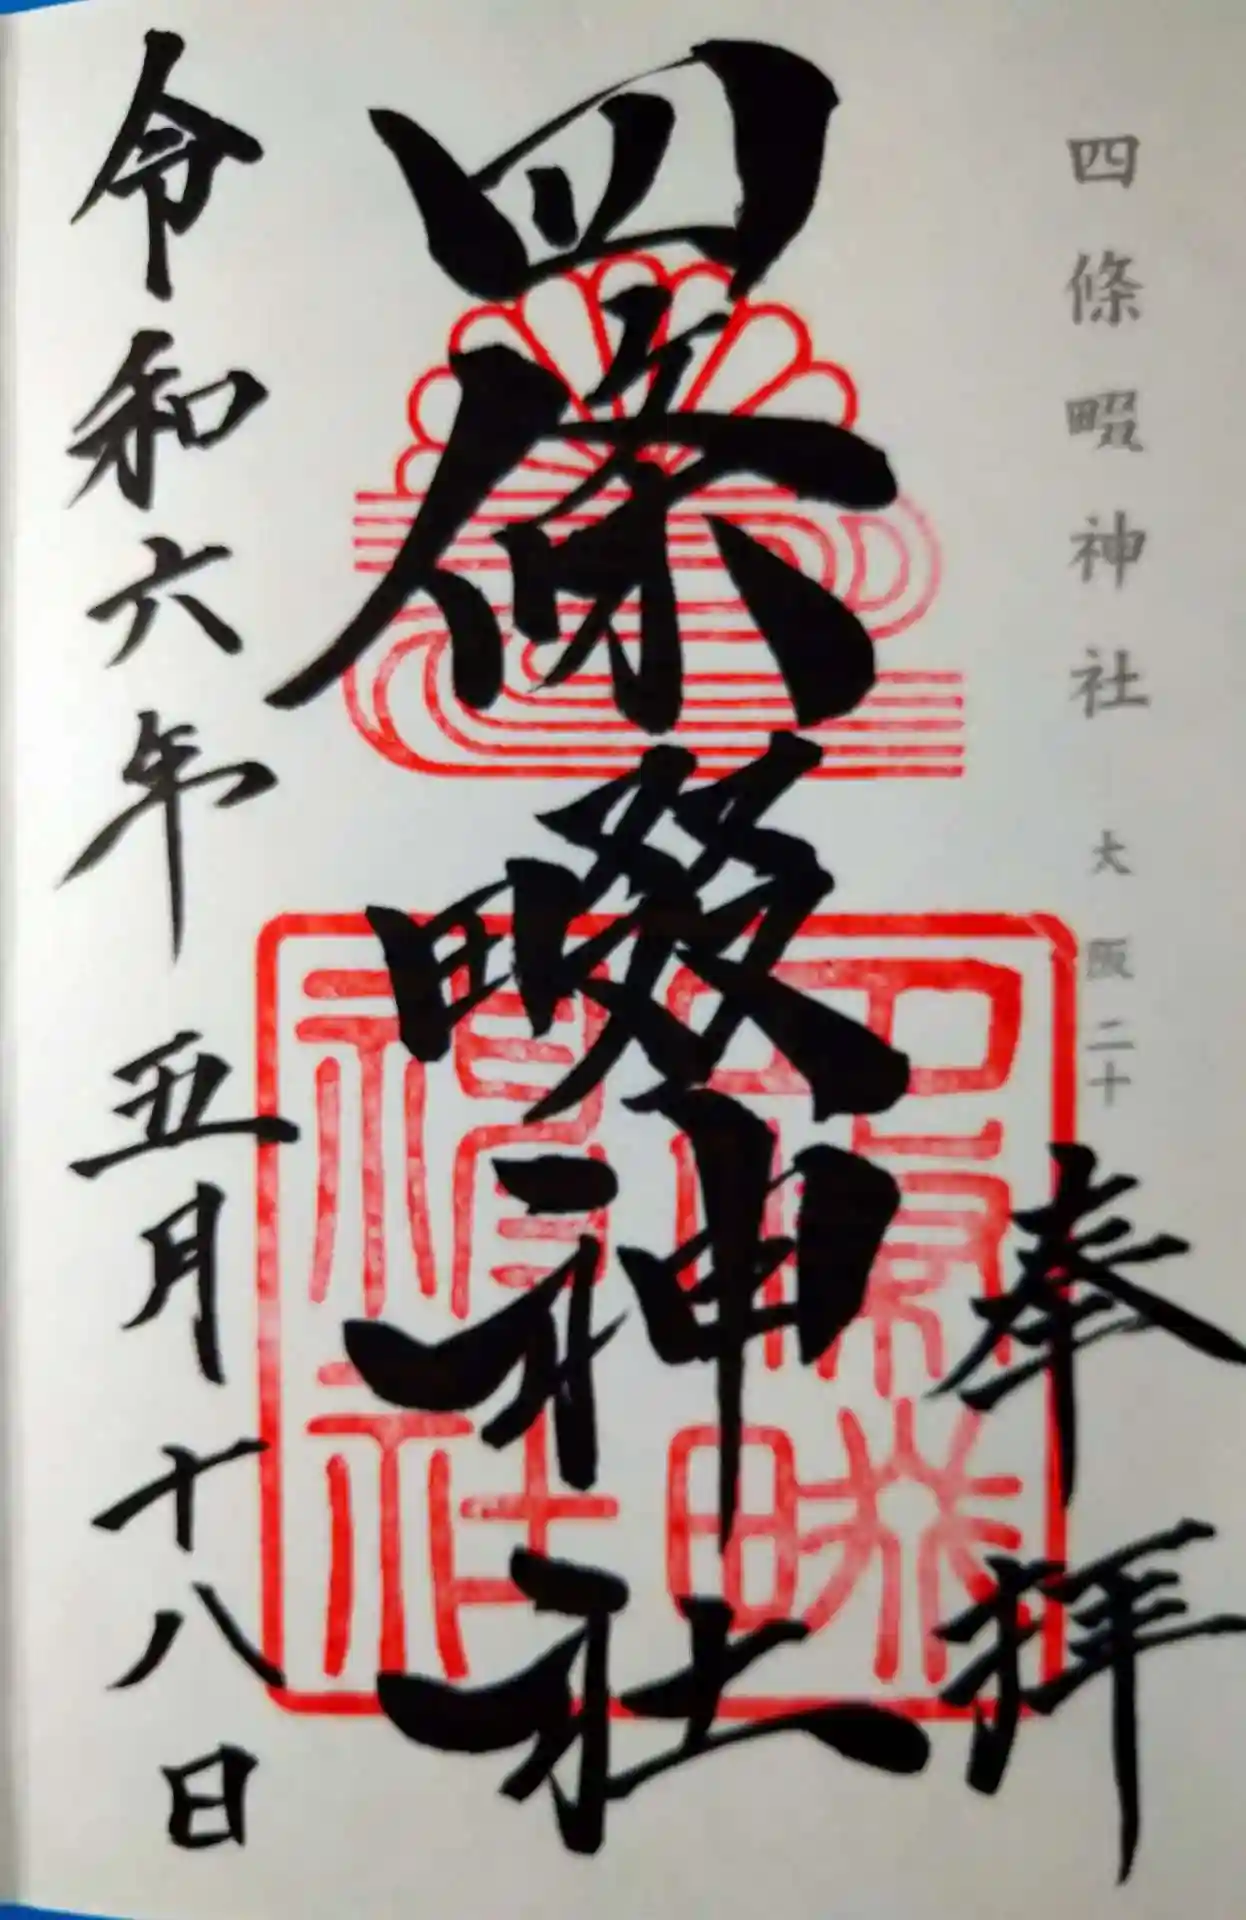 四條畷神社 大阪二十
奉拝
四條畷神社
令和六年五月十八日